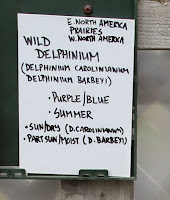 E. NORTH AMERICA
PRAIRIES
W. NORTH AMERICA
WILD
DELPHINIUM
(DELPHINIUM CAROLINIANUM
DELPHINIUM BARBEYI)
• PURPLE/BLUE
• SUMMER
• SUN/DRY (D. CAROLINIANUM)
• PART SUN/MOIST (D. BARBEYI)